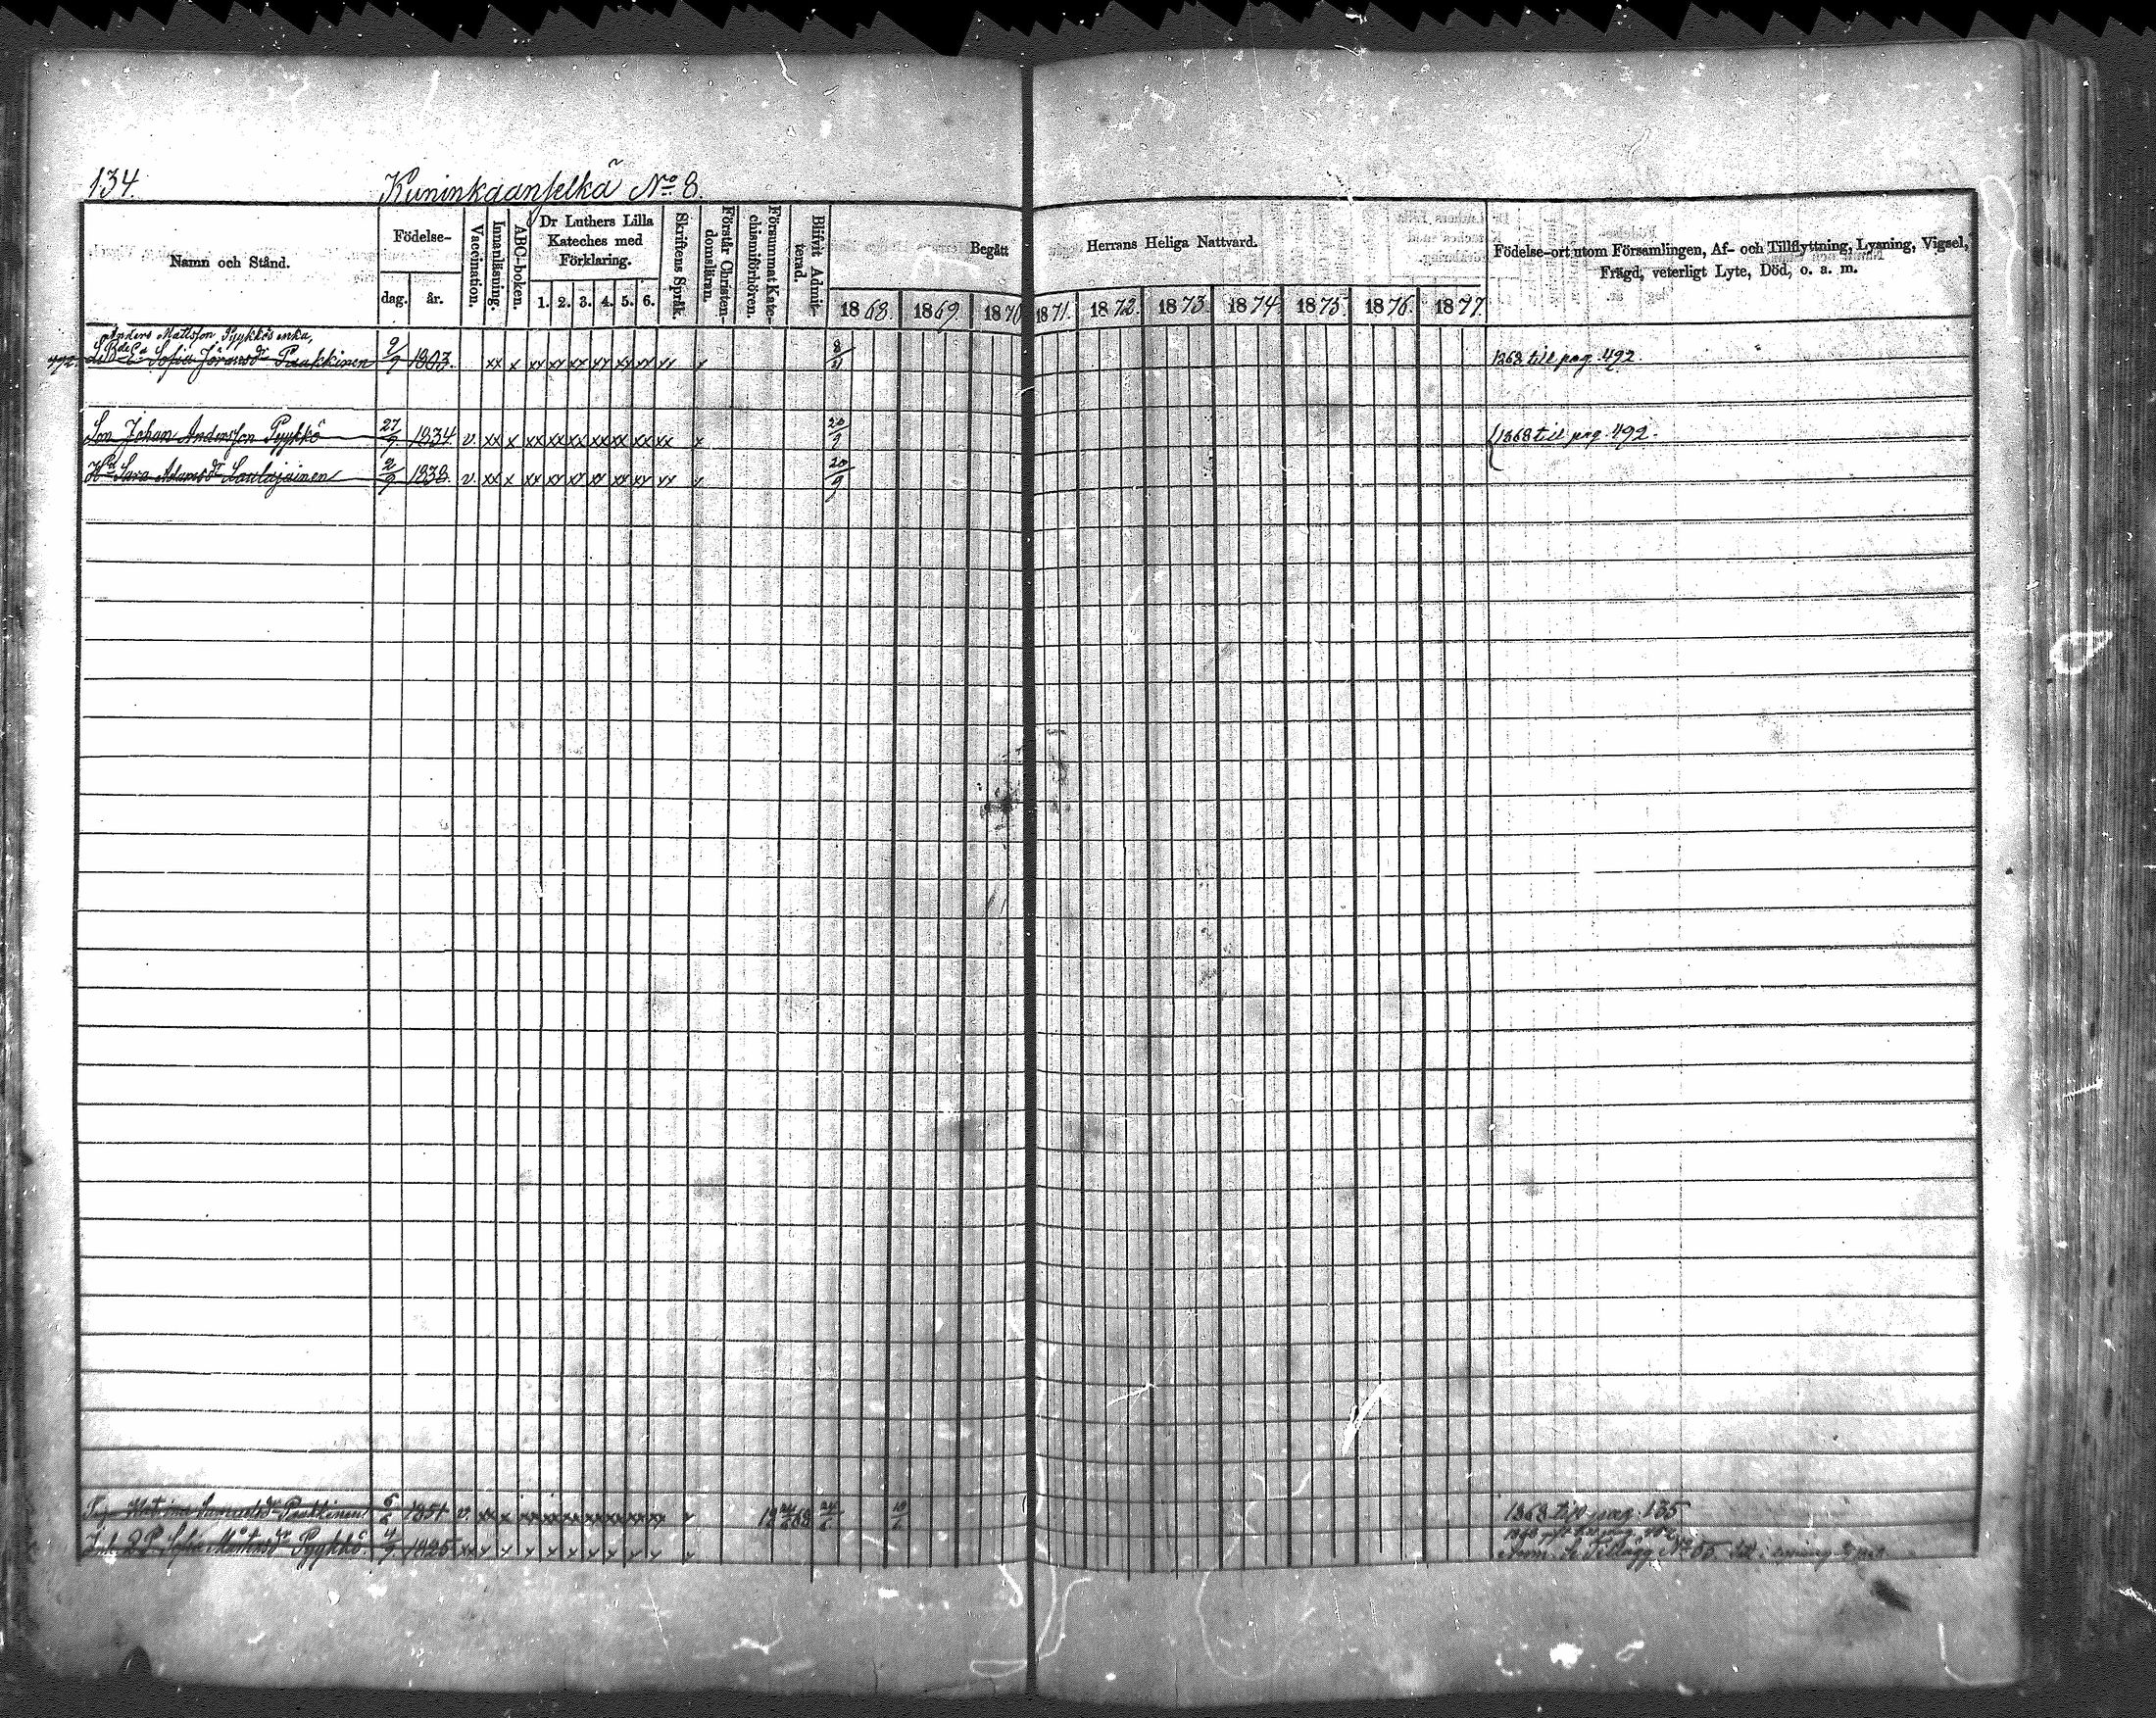 134. Kuninkaanselkä No 8.
Namn och Stånd.
Födelse-
dag. år.
Vaccination.
Innanläsning.
ABC-boken.
Dr Luthers Lilla
Kateches med
Förklaring.
1. 2. 3. 4. 5. 6.
Skriftens Språk.
Förstår Christen-
domsläran.
Försummat Kate-
chismiförhören.
Blifvit Admit-
terad.
Begått Herrans Heliga Nattvard.
1868. 1869. 1870 1871. 1872. 1873. 1874. 1875. 1876. 1877.
Födelse-ort utom Församlingen, Af- och Tillflyttning, Lysning, Vigsel,
Frägd, veterligt Lyte, Död, o. a. m.
Anders Mattsson Pyykkös enka,
492. Sofia Göransdr Paakkinen 9/9 1803. xx x xx xx xx xx xx xx xx x 1868 till pag. 492.
Son Johan Andersson Pyykkö 27/9 1834 v. xx x xx xx xx xx xx xx xx x 20/9 1868 till pag. 492.
Hu Sara Adamsdr 2/9 1838. v. xx x xx xx xx xx xx xx xx x 20/9
1851 v. xx x xx xx xx xx xx xx xx 24/6 1868 till pag. 135
Sofia Mårtensdr Pyykkö 4/9 1825 Tillägg No 55